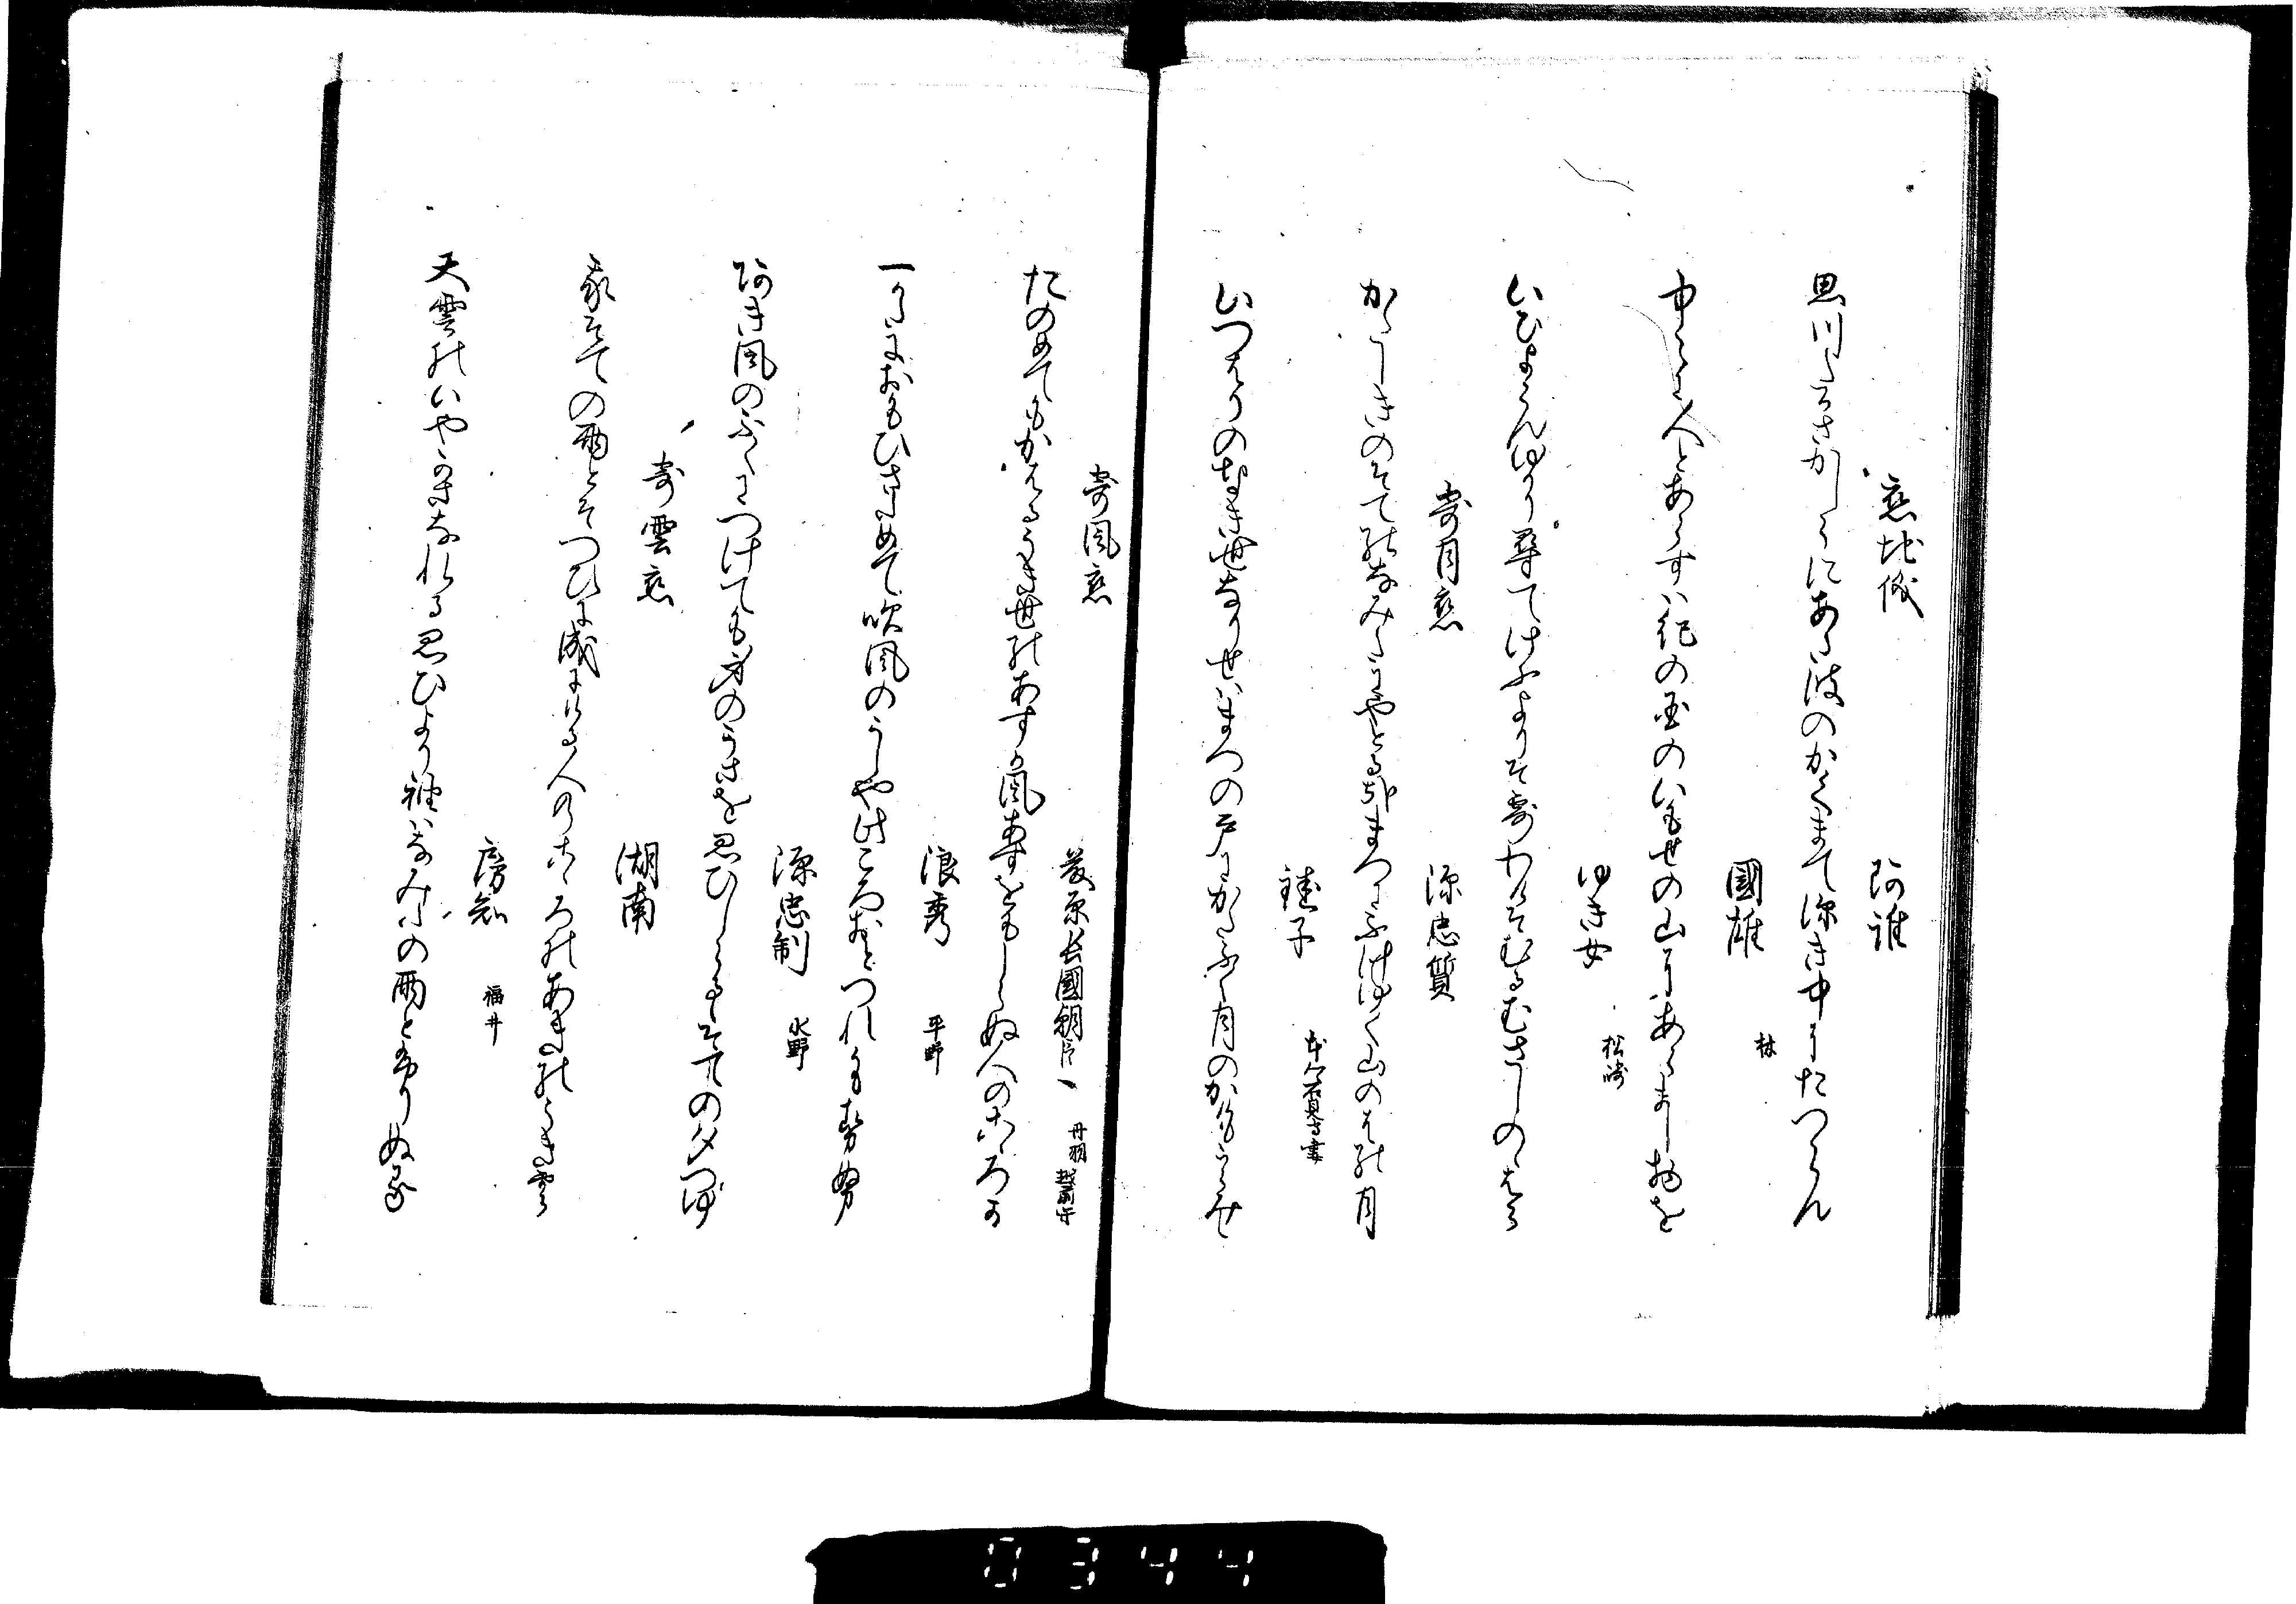 恋地儀
阿誰
思川たきさかしらにあた波のかくまて深き中にたつらん
國雄 林
中々に人とあらすは紀の国のいもせの山にあらまし物を
ゆき女 松崎
いひよらんゆかり尋てけふよりそ寄わけそむるむさしのゝはら
寄月恋
源忠質
かたしきのそてのなみたにやとる哉まつにふけゆく山のはの月
鏈子
いつはりのなき世なりせはまつの戸にかたふく月のかけもうらみし
寄風恋
藤原長國朝臣 丹羽 越前守
たのめてもかはるうき世のあすか風あすをもしらぬ人のこゝろに
浪秀 平野
一かたにおもひさためて吹風のうしや此ころおとつれもせぬ
源忠制 水野
阿き風のふくにつけても身のうさを思ひしらるゝそての夕つゆ
寄雲恋
湖南
我そての雨とそつひに成にける人のこゝろのあきのうき雲
房知 福井
天雲のいやかさなれる思ひより袖はなみたの雨とふりぬる